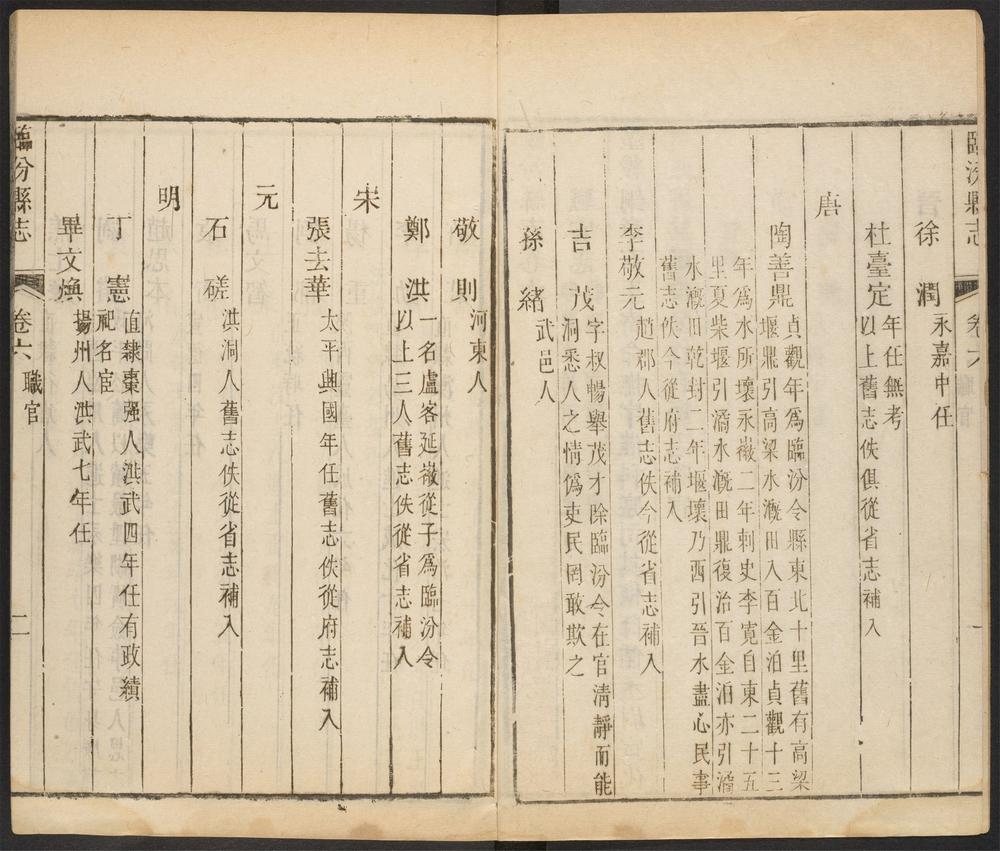 臨汾縣志
卷六
徐潤永嘉中任
杜臺定年任無考
以上舊志佚俱從省志補入
唐
陶善鼎貞觀年爲臨汾令縣東北十里舊有高梁
堰鼎引高梁水漑田入百金泊貞觀十三
年爲水所壞永徽二年刺史李寬自東二十五
里夏柴堰引潏水漑田鼎復治百金泊亦引潏
水漑田乾封二年堰壞乃西引晉水盡心民事
舊志佚今從府志補入
李敬元趙郡人舊志佚今從省志補入
吉茂字叔暢舉茂才除臨汾令在官淸靜而能
洞悉人之情僞吏民罔敢欺之
孫緒武邑人
敬則河東人
鄭洪一名盧客延徽從子爲臨汾令
以上三人舊志佚從省志補入
宋
張去華太平興國年任舊志佚從府志補入
元
石磋洪洞人舊志佚從省志補入
明
丁憲直隸棗强人洪武四年任有政績
祀名宦
畢文煥揚州人洪武七年任
臨汾縣志
卷六 職官
二